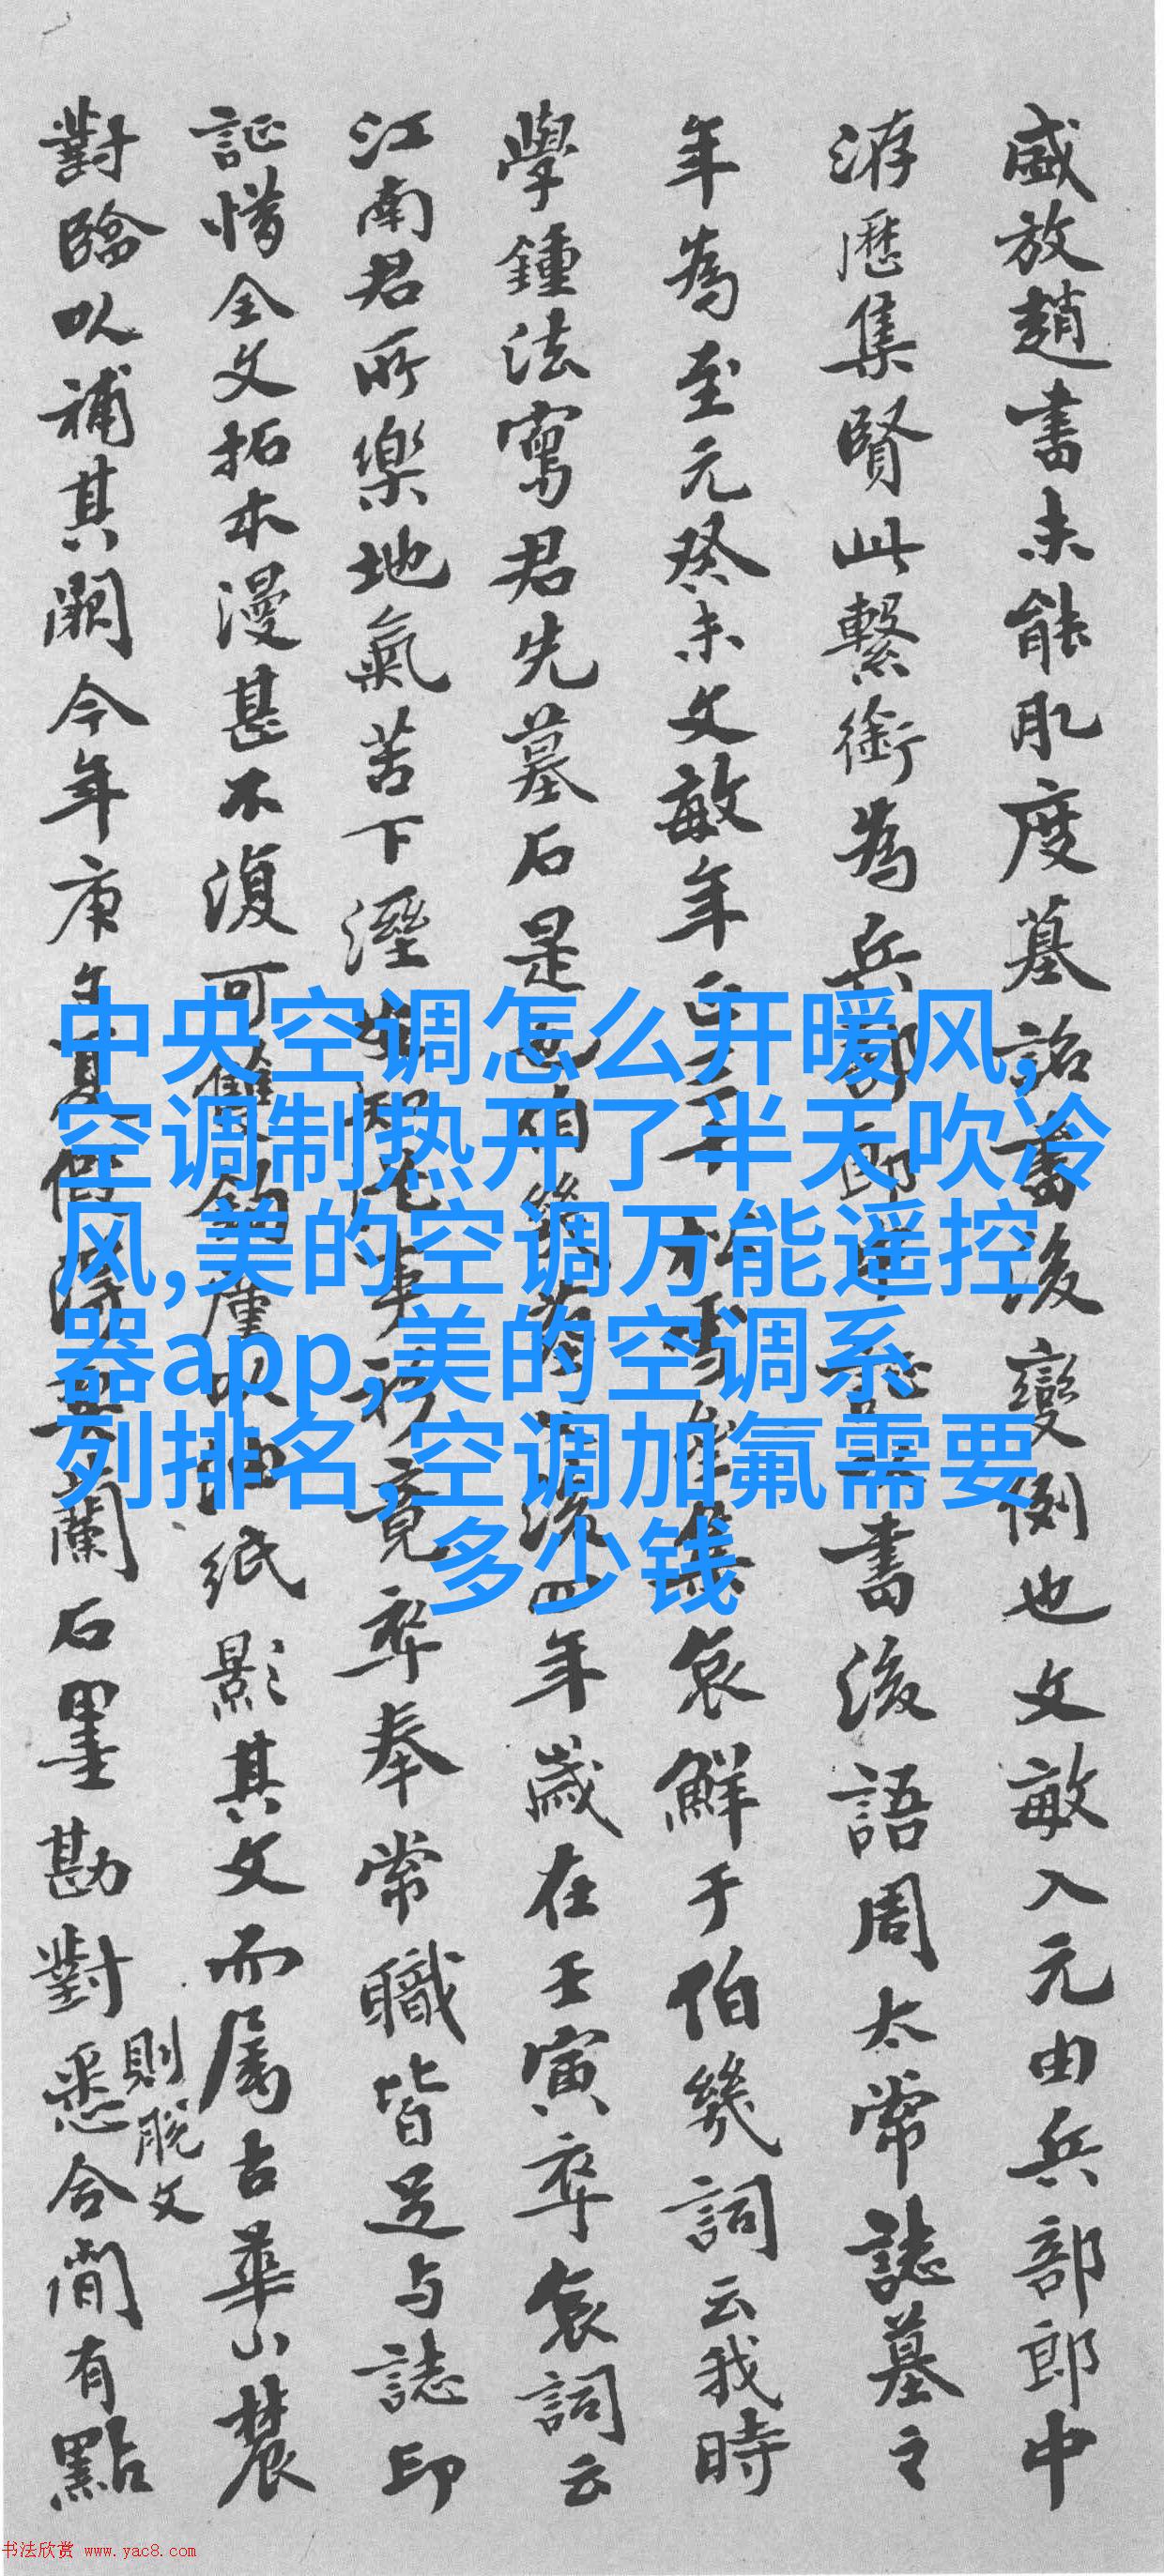 盛放趙書未能肌度墓誌書後變例也文敏入元由兵部郎中
游歷集賢此繫銜為兵部郎中書後語周太常誌墓之
年為至元癸未文敏年正三十松雪集哀鮮于伯幾詞云我時
學鍾法寫君先墓石是伯幾後四年歲在壬寅卒哀詞云
江南君所樂地氣苦下溼事竟卒奉常職皆足与誌印
証惜全文拓本漫甚不復可雙鉤僅以油紙影其文而属古華山農
對臨以補其闕今年庚夏假得蘭石墨勘對悉合間有點
則脫文
中央空调怎么开暖风,
空调制热开了半天吹冷
风,美的空调万能遥控
器app,美的空调系
列排名,空调加氟需要
多少钱
书法欣赏 www.yac8.com